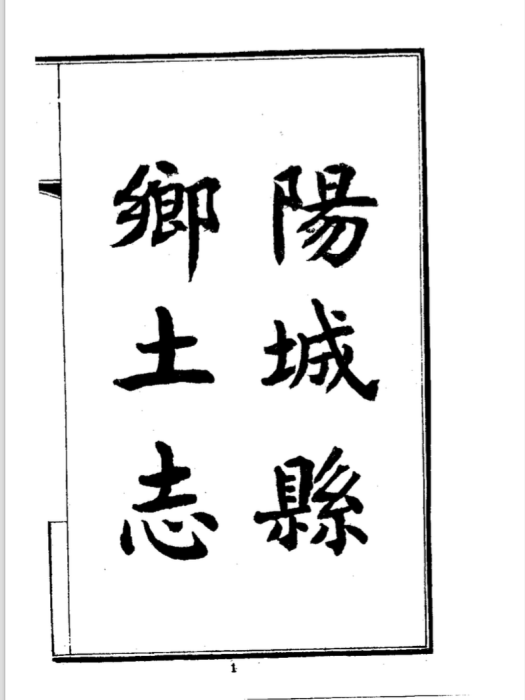 陽城縣
鄉土志
1